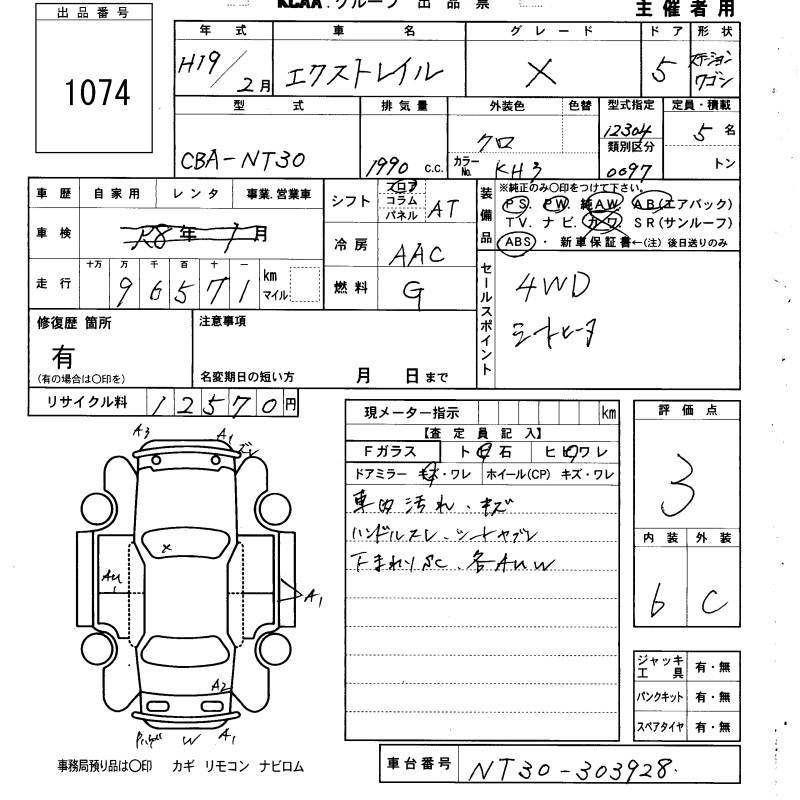 KCAA.グループ 出品票
主催者用
出品番号
1074
年式 車名 グレード ドア 形状
H19/2月 エクストレイル X 5 ステーションワゴン
型式 排気量 外装色 色替 型式指定 定員・積載
CBA-NT30 1990 c.c. クロ カラーNo. KH3 12304 5 名
類別区分
0097 トン
車歴 自家用 レンタ 事業.営業車
シフト フロア コラム パネル AT
装備品 ※純正のみ〇印をつけて下さい。
PS. PW. 純AW. AB(エアバック)
TV.ナビ.カワ SR(サンルーフ)
ABS・新車保証書←(注)後日送りのみ
車検 R8年1月
冷房 AAC
走行 十万 万 千 百 十 一
96571 km マイル
燃料 G
セールスポイント
4WD
シートヒータ
修復歴 箇所
有
(有の場合は〇印を)
注意事項
名変期日の短い方 月 日まで
リサイクル料 12570円
現メーター指示 km
【査定員記入】
Fガラス ト日石 ヒビワレ
ドアミラー キズ・ワレ ホイール(CP) キズ・ワレ
車内汚れ.キズ
ハンドルスレ.シートヤブレ
下まわりSC.各AUW
評価点
3
内装 外装
6 C
ジャッキ工具 有・無
パンクキット 有・無
スペアタイヤ 有・無
A3 A1
ズレ
X
AU A1
A2
W A1
事務局預り品は〇印 カギ リモコン ナビロム
車台番号 NT30-303928.